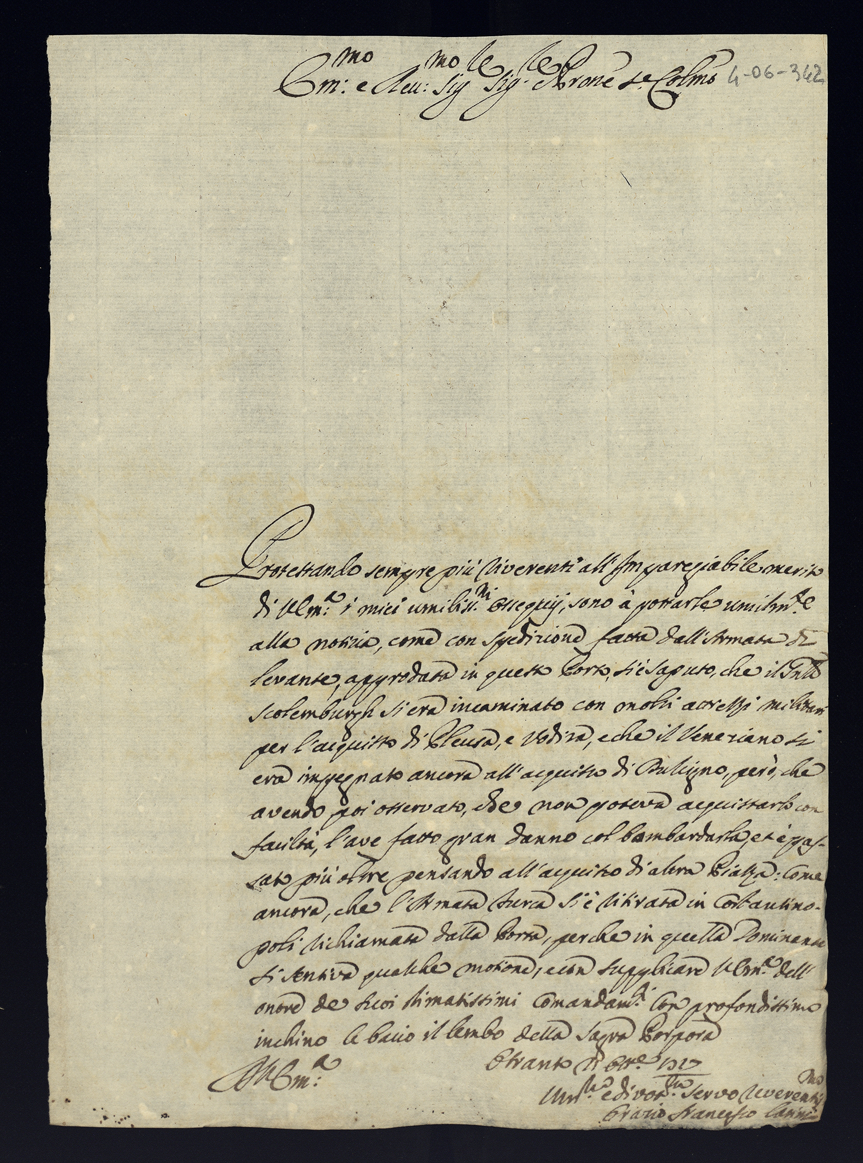 Em:mo e Reu:mo Sig.re Sig.re e Prone se. Colmo 4-06-342
Protestando sempre più riverenti all'Impareggiabile merito
di V. Em:a i miei umiliss.mi ossequij, sono à portarle umilm.te
alla notizia, come con spedizione fatta dall'Armata di
levante, approdata in questo Porto, si è saputo, che il
Scolemburgh si era incaminato con molti attrezzi militari
per l'acquisto di e che il Veneziano si
era impegnato ancora all'acquisto di però, che
avendo poi osservato, che non poteva acquistarlo con
facilta, l'ave fatto gran danno col bombardarla, et è pas-
sato più oltre pensando all'acquisto di altra Piazza: Come
ancora, che l'Armata turca si è ritirata in Costantino-
poli richiamata dalla Porta, perche in quella Dominante
si sentiva qualche motione, e con supplicare V. Em:a dell'
onore de suoi stimatissimi Comandam.ti Con profondissimo
inchino le bacio il lembo della Sagra Porpora
Otranto Ott.e 1717
V. Em:a
Um.mo e divot.mo Servo riverentis.mo
Orazio Francesco